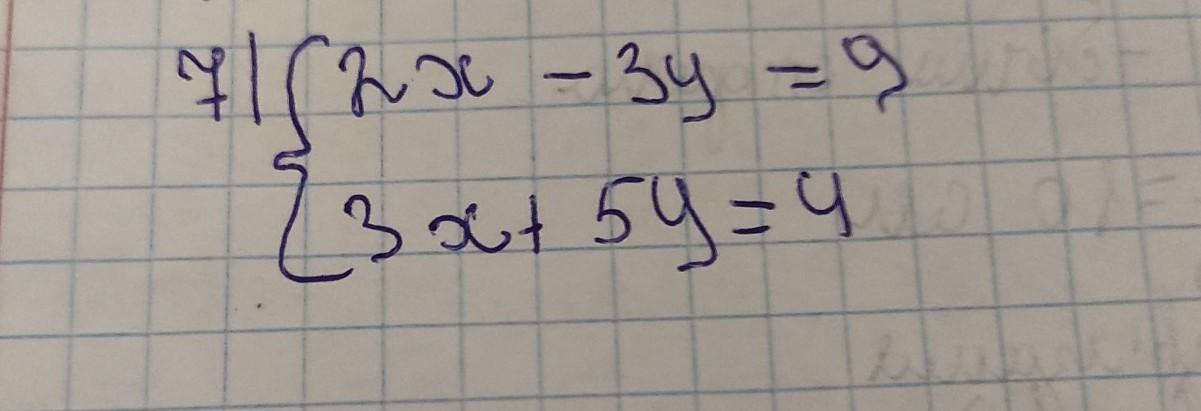 7) { 2x - 3y = 9
3x + 5y = 4